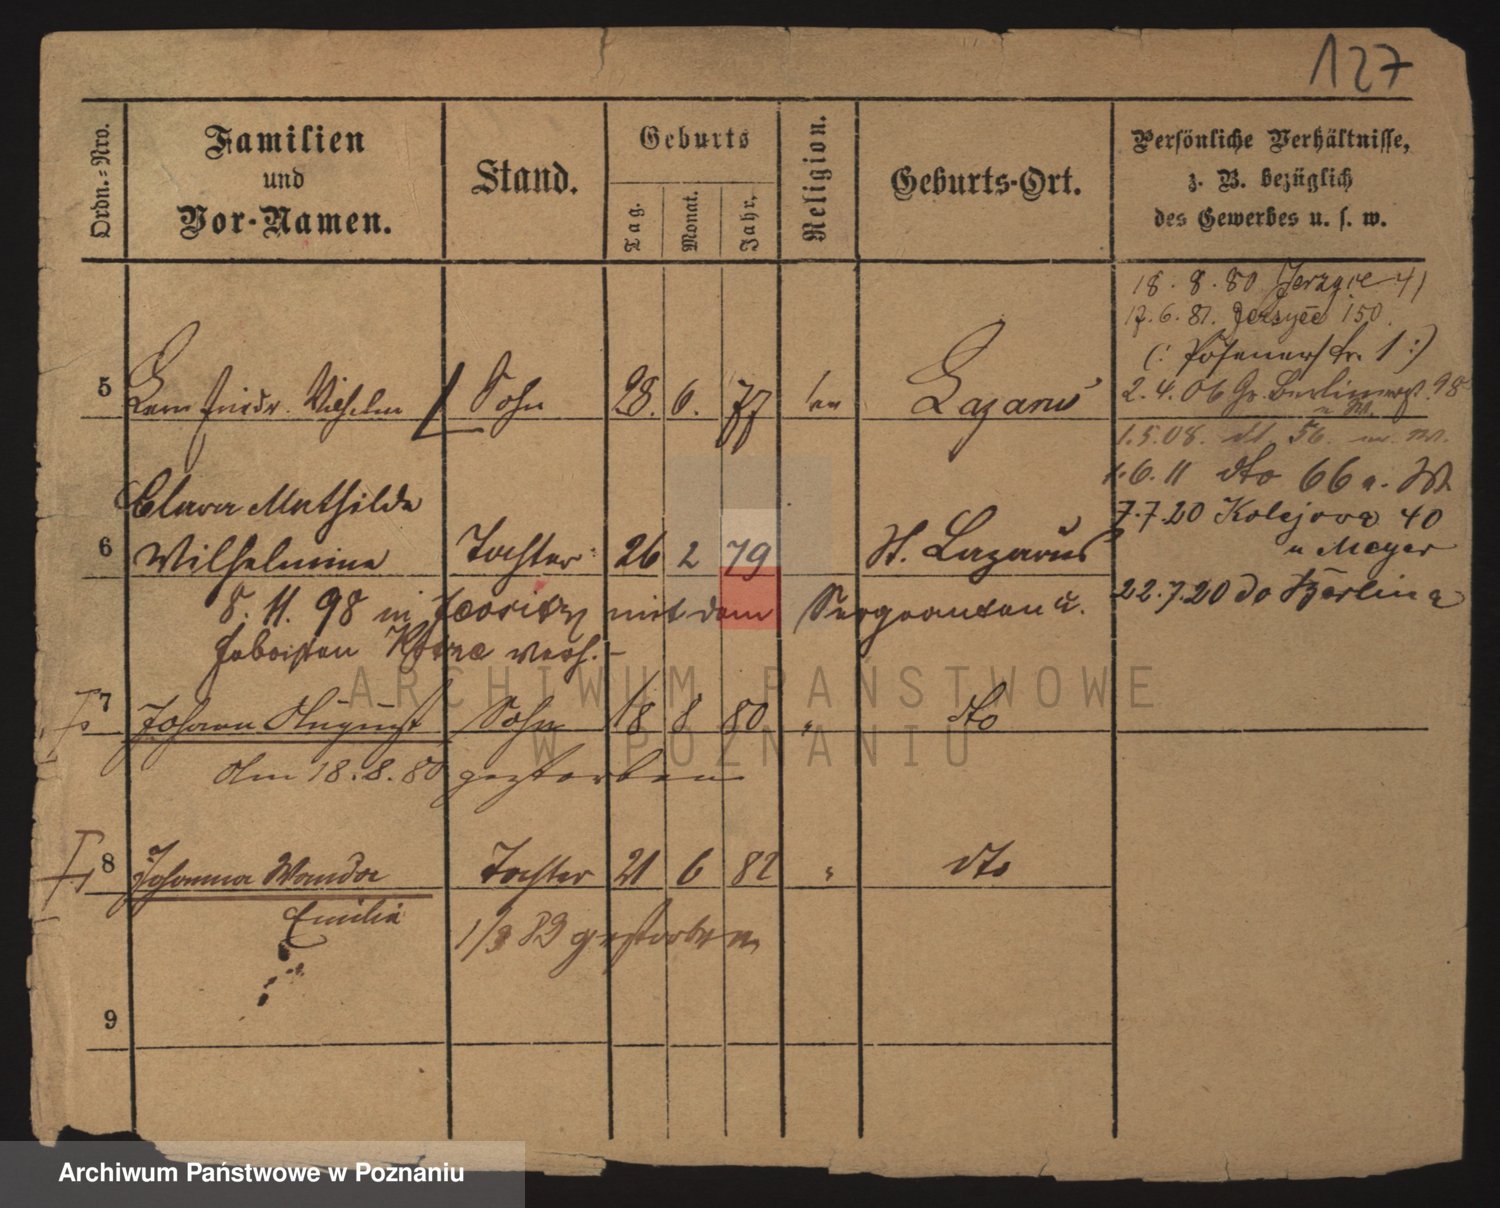 127
Ordn.-Nro.
Familien
und
Vor-Namen.
Stand.
Geburts
Tag.
Monat.
Jahr.
Religion.
Geburts-Ort.
Persönliche Verhältnisse,
z. B. bezüglich
des Gewerbes u. s. w.
18. 8. 80 Jerzyce 41
17. 6. 81. Jersyce 150.
(: Posenerstr. 1 :)
5 Friedr. Wilhelm Sohn 28. 6. 77 Lazarus
2. 4. 06 Gr. Berlinerst. 98
u. W.
1.5.08. dt 56. W.
1.6.11 dto 66 a. W.
7.7.20 Kolejova 40
u Meyer
22.7.20 do Berlin a
Clara Mathilde
6 Wilhelmine Tochter 26 2 79 St. Lazarus
8. 11. 98 in mit dem Sergeanten u.
verh. -
7 Johann August Sohn 18 8 80 " dto
Am 18. 8. 80 gestorben
8 Johanna Wanda Tochter 21 6 82 " dto
Emilie
1/3 83 gestorben
9
ARCHIWUM PAŃSTWOWE
W POZNANIU
Archiwum Państwowe w Poznaniu